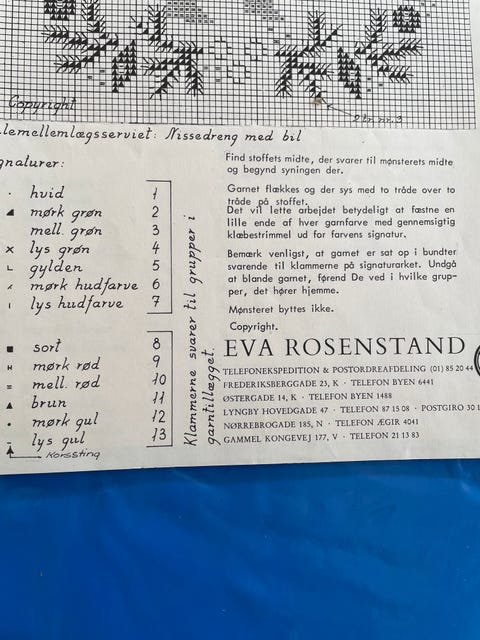 Copyright
2 tr. nr. 3
lemellemlægsserviet: Nissedreng med bil
gnaturer:
hvid 1
mørk grøn 2
mell. grøn 3
lys grøn 4
gylden 5
mørk hudfarve 6
lys hudfarve 7
sort 8
mørk rød 9
mell. rød 10
brun 11
mørk gul 12
lys gul 13
Korssting
Klammerne svarer til grupper i
garntillægget.
Find stoffets midte, der svarer til mønsterets midte
og begynd syningen der.
Garnet flækkes og der sys med to tråde over to
tråde på stoffet.
Det vil lette arbejdet betydeligt at fæstne en
lille ende af hver garnfarve med gennemsigtig
klæbestrimmel ud for farvens signatur.
Bemærk venligst, at garnet er sat op i bundter
svarende til klammerne på signaturarket. Undgå
at blande garnet, førend De ved i hvilke grup-
per, det hører hjemme.
Mønsteret byttes ikke.
Copyright.
EVA ROSENSTAND
TELEFONEKSPEDITION & POSTORDREAFDELING (01) 85 20 44
FREDERIKSBERGGADE 23, K · TELEFON BYEN 6441
ØSTERGADE 14, K · TELEFON BYEN 1488
LYNGBY HOVEDGADE 47 · TELEFON 87 15 08 · POSTGIRO 30 1
NØRREBROGADE 185, N · TELEFON ÆGIR 4041
GAMMEL KONGEVEJ 177, V · TELEFON 21 13 83